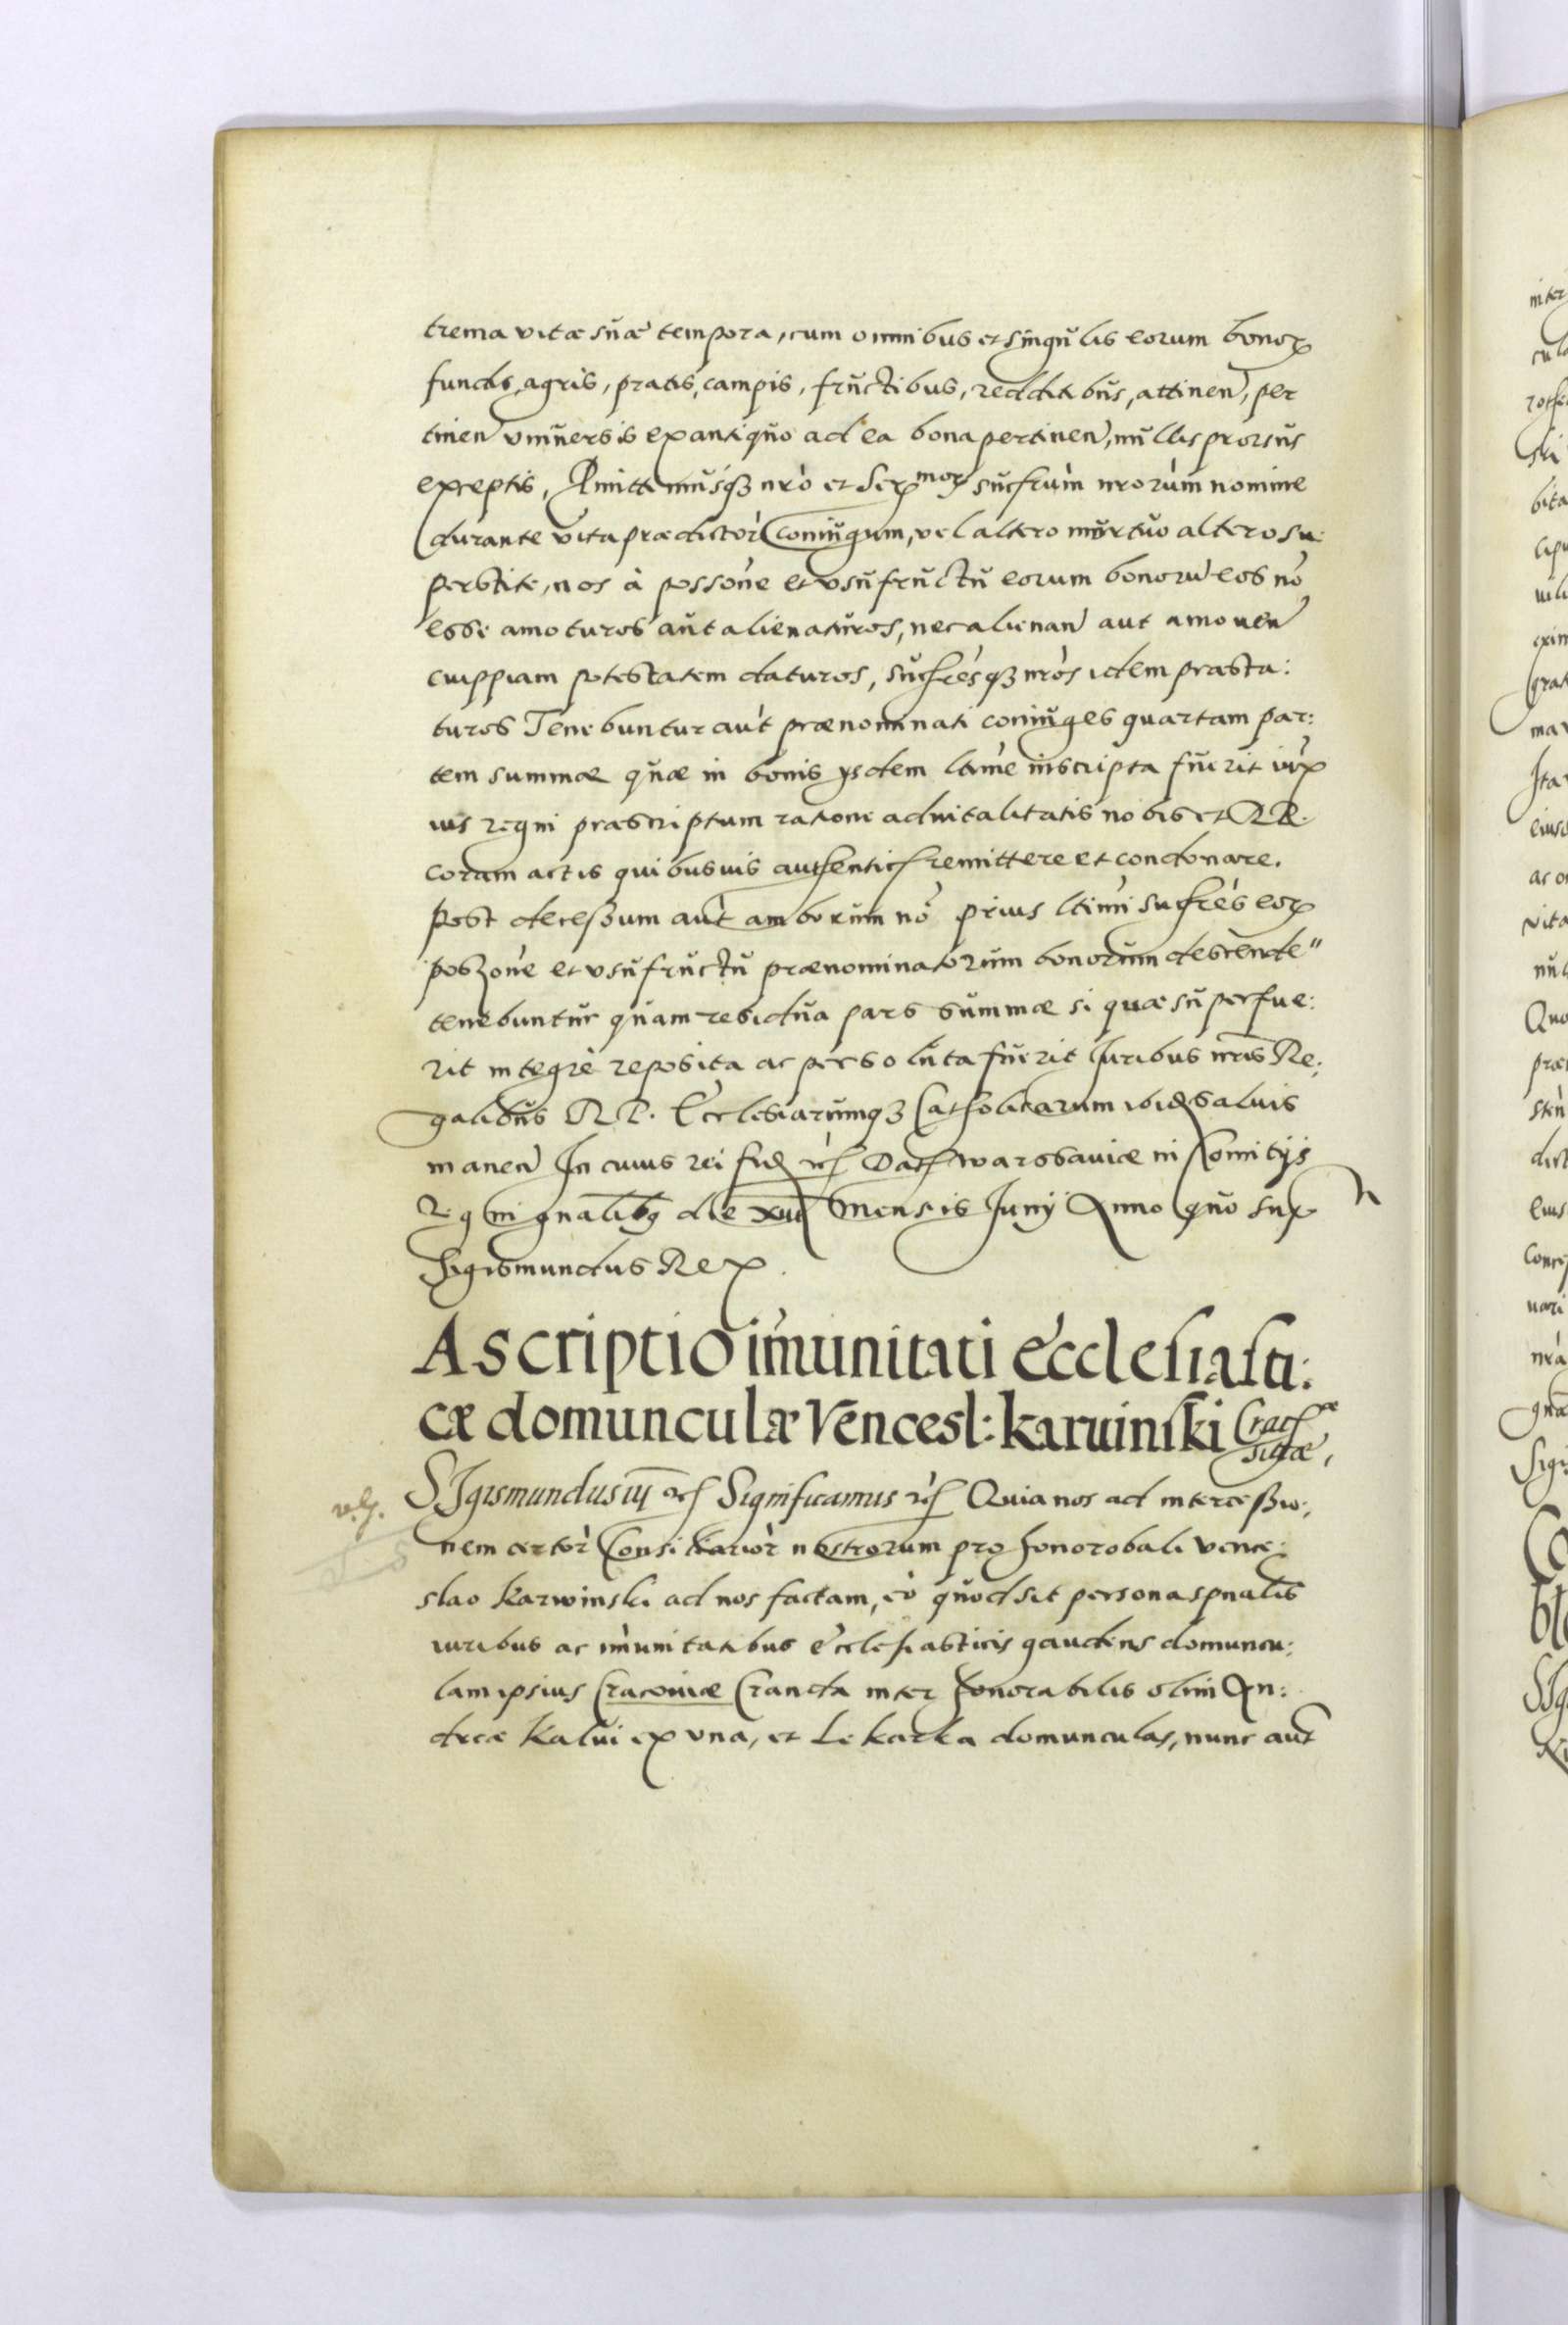 trema vitæ suæ tempora, cum omnibus et singulis eorum bonor
fundis, agris, pratis, campis, fructibus, redditibus, attinen, per
tinen universis ex antiquo ad ea bona pertinen, nullis prorsus
exceptis, Pmittimusqz nro et Ser mor succrum nrorum nomine
durante vita prædictor coniugum, vel altero mortuo altero su:
perstite, nos à possone et usufructu eorum bonoru eos no
esse amoturos aut alienaturos, nec alienan aut amoven
cuippiam potestatem daturos, succresqz nros idem præsta:
turos Tenebuntur aut prænominati coniuges quartam par:
tem summæ quæ in bonis ysdem ltime inscripta fuerit iux
ius regni præscriptum ratione advitalitatis nobis et RR.
coram actis quibusvis authentic remittere et condonare.
Post decessum aut amborum no prius ltimi succres eor
poszone et usufructu prænominatorum bonorum descende"
tenebuntur quam residua pars summæ si quæ superfue:
rit integrè reposita ac persoluta fuerit Juribus nris Re:
galibus RR. Ecclesiarumqz Catholicarum ibid salvis
manen In cuius rei fid etc Dat Warssaviæ in Comitijs
Regni gnalibq die xiii Mensis Junij Anno quo sup
Sigismundus Rex.
Ascriptio imunitati ecclesiasti:
cæ domunculæ Vencesl: karwinski Crac æ
sitæ,
SIgismundus iij etc Significamus etc Quia nos ad intercessio:
nem certor Consiliarior nostrorum pro honorobali Vence:
slao Karwinski ad nos factam, eò quod sit persona spnalis
iuribus ac imunitatibus ecclesiasticis gaudens domuncu:
lam ipsius Cracoviæ Crancta inter honorabilis olim An:
dreæ Kalui ex una, et Lekarka domunculas, nunc aut